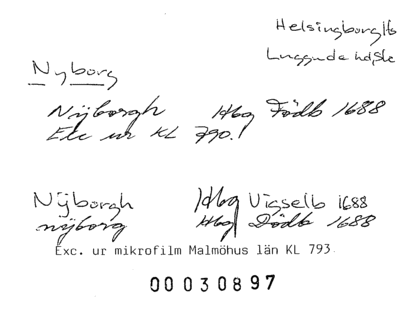 Helsingborg lfs
Luggude hd, Sk
Nyborg
Nÿborgh Hbg Födb 1688
Exc ur KL 790.
Nÿborgh Hbg Vigselb 1688
nÿborg Hbg Dödb 1688
Exc. ur mikrofilm Malmöhus län KL 793
00030897